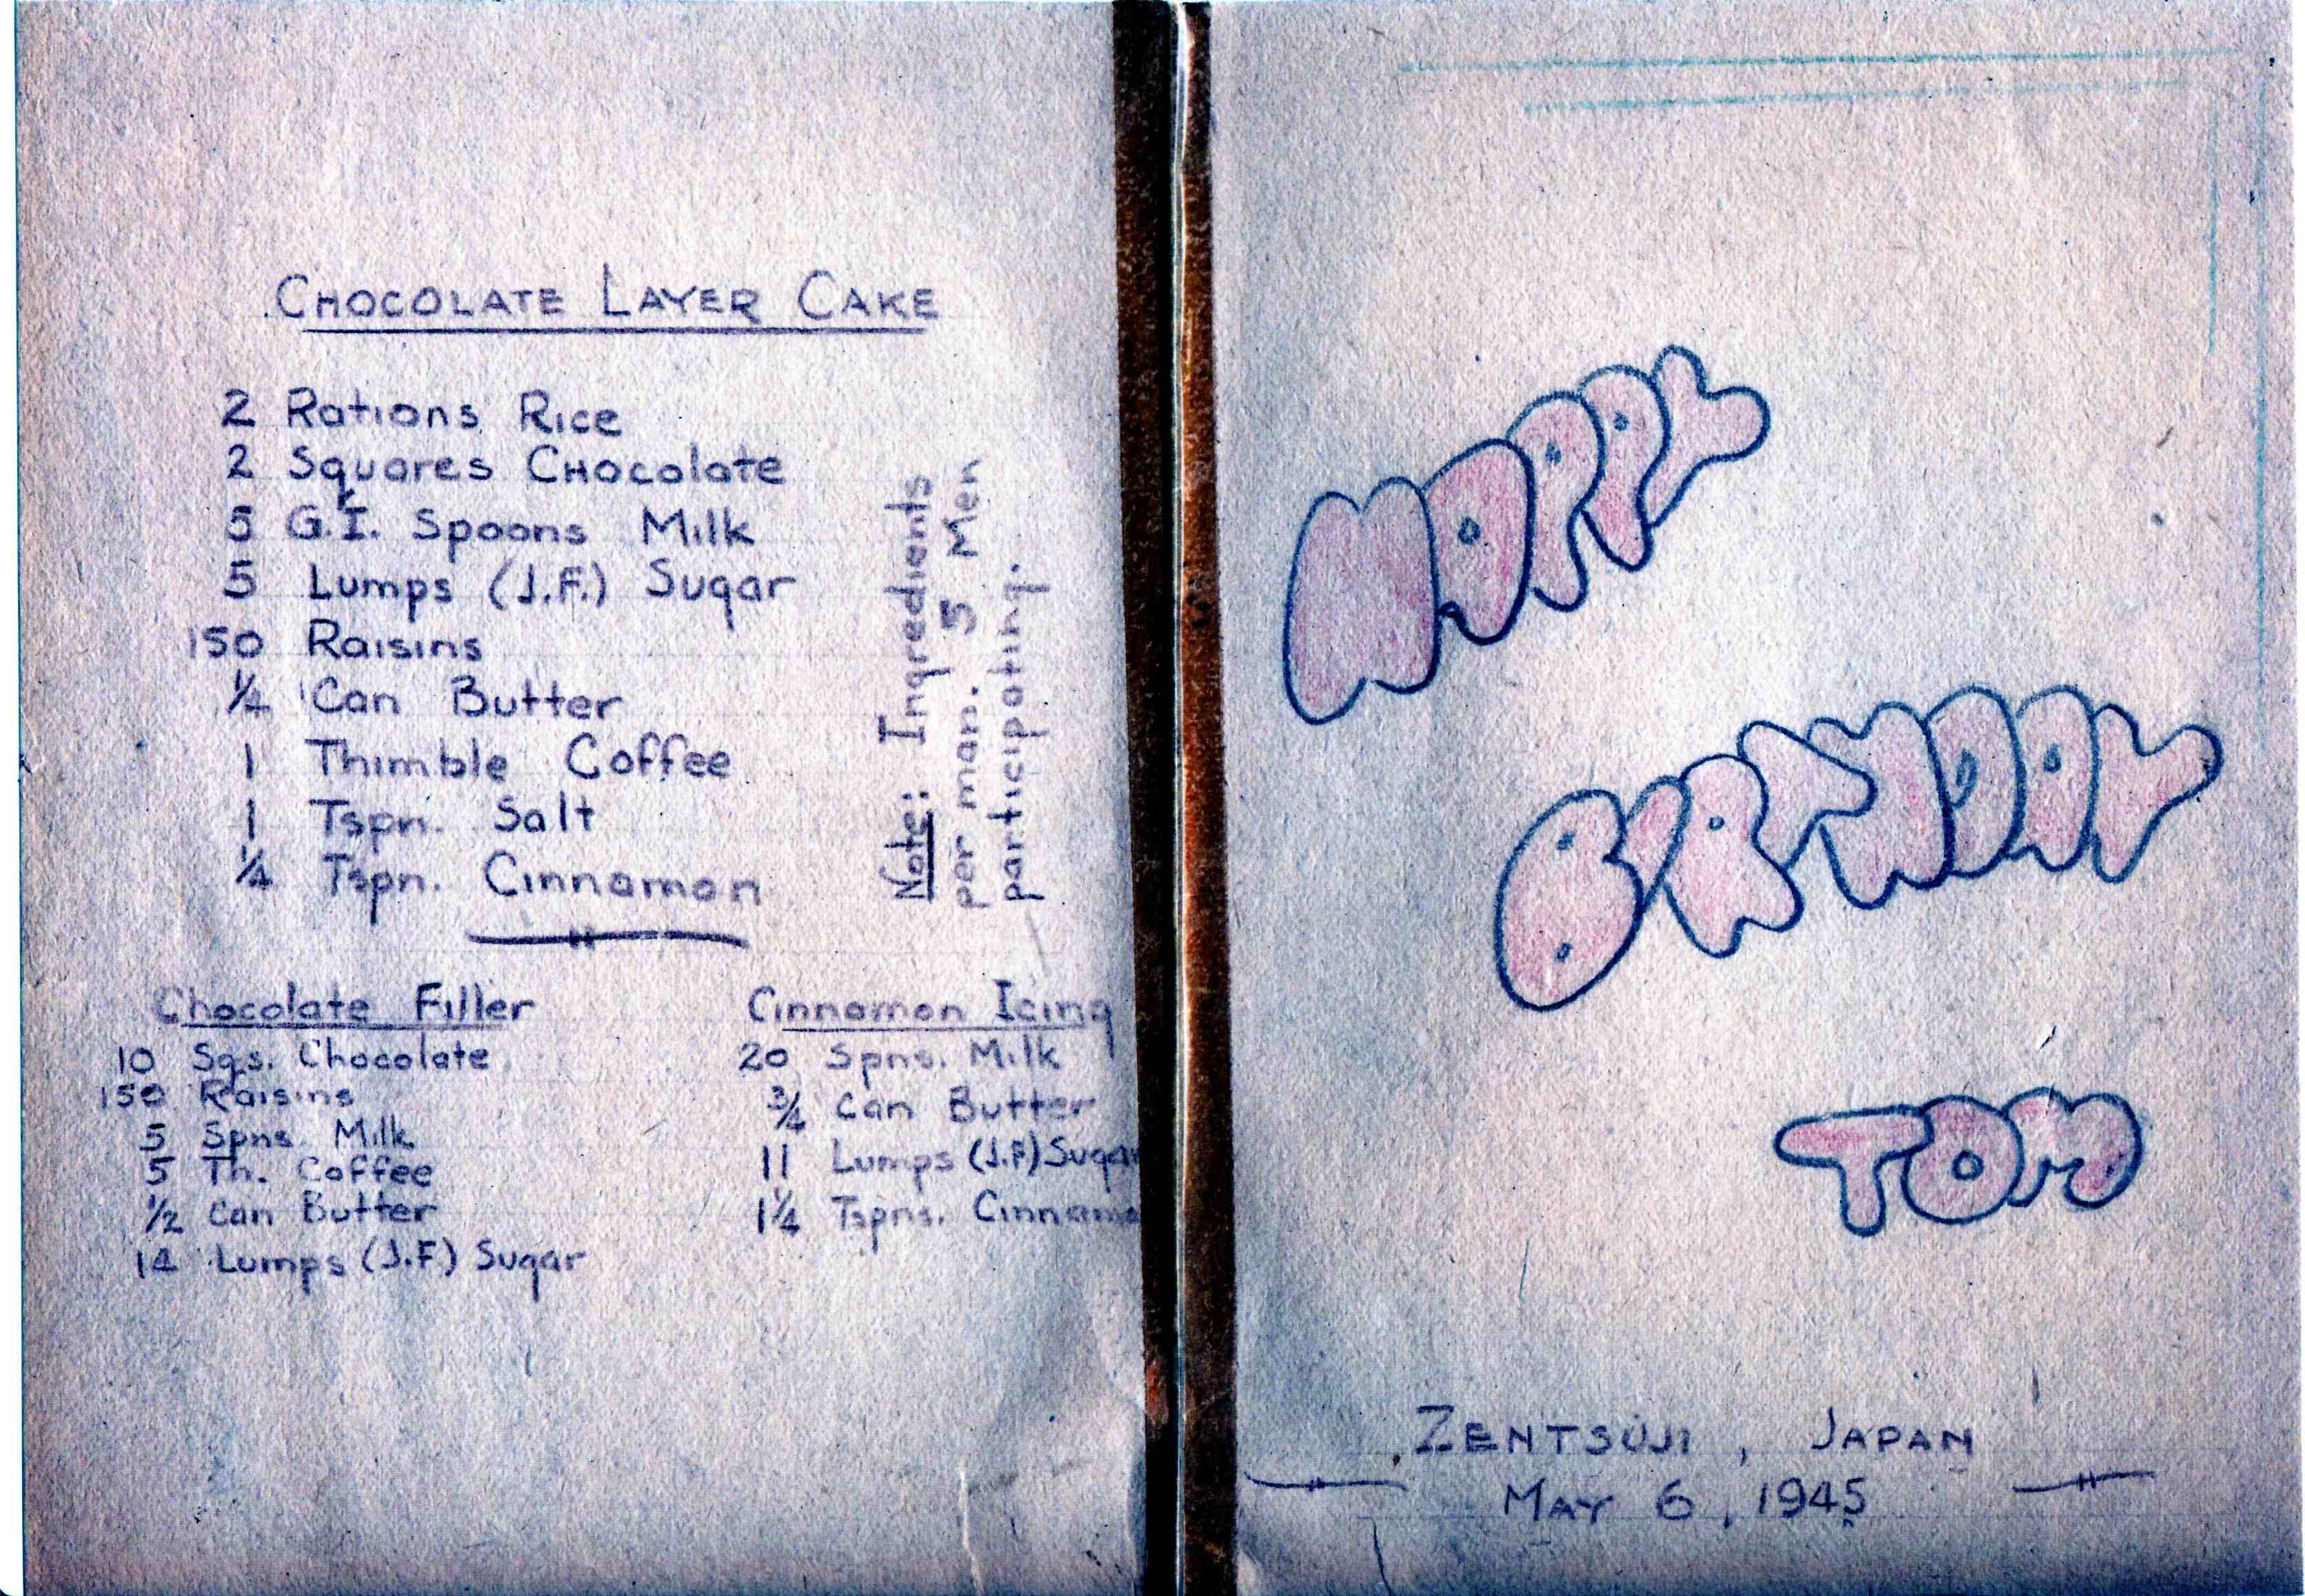 CHOCOLATE LAYER CAKE
2 Rations Rice
2 Squares Chocolate
5 G.I. Spoons Milk
5 Lumps (J.F.) Sugar
150 Raisins
1/4 Can Butter
1 Thimble Coffee
1 Tspn. Salt
1/4 Tspn. Cinnamon
Note: Ingredients
per man. 5 Men
participating.
Chocolate Filler
10 Sqs. Chocolate
150 Raisins
5 Spns. Milk
5 Th. Coffee
1/2 Can Butter
14 Lumps (J.F) Sugar
Cinnamon Icing
20 Spns. Milk
3/4 Can Butter
11 Lumps (J.F) Sugar
1 1/4 Tspns. Cinnamo
HAPPY
BIRTHDAY
TOM
ZENTSUJI, JAPAN
MAY 6, 1945